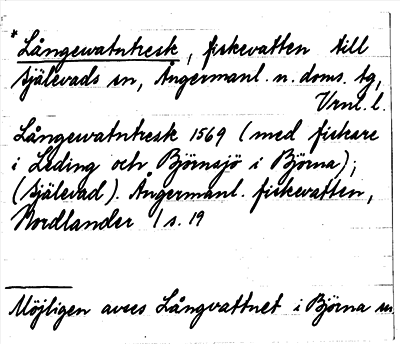 * Långewatntresk, fiskevatten till
Själevads sn, Ångermanl. n. doms. tg,
Vrnl. l.
Långewatntresk 1569 (med fiskare
i Leding och Björnsjö i Björna);
(Själevad). Ångermanl. fiskevatten,
Nordlander 1 s. 19
Möjligen avses Långvattnet i Björna sn